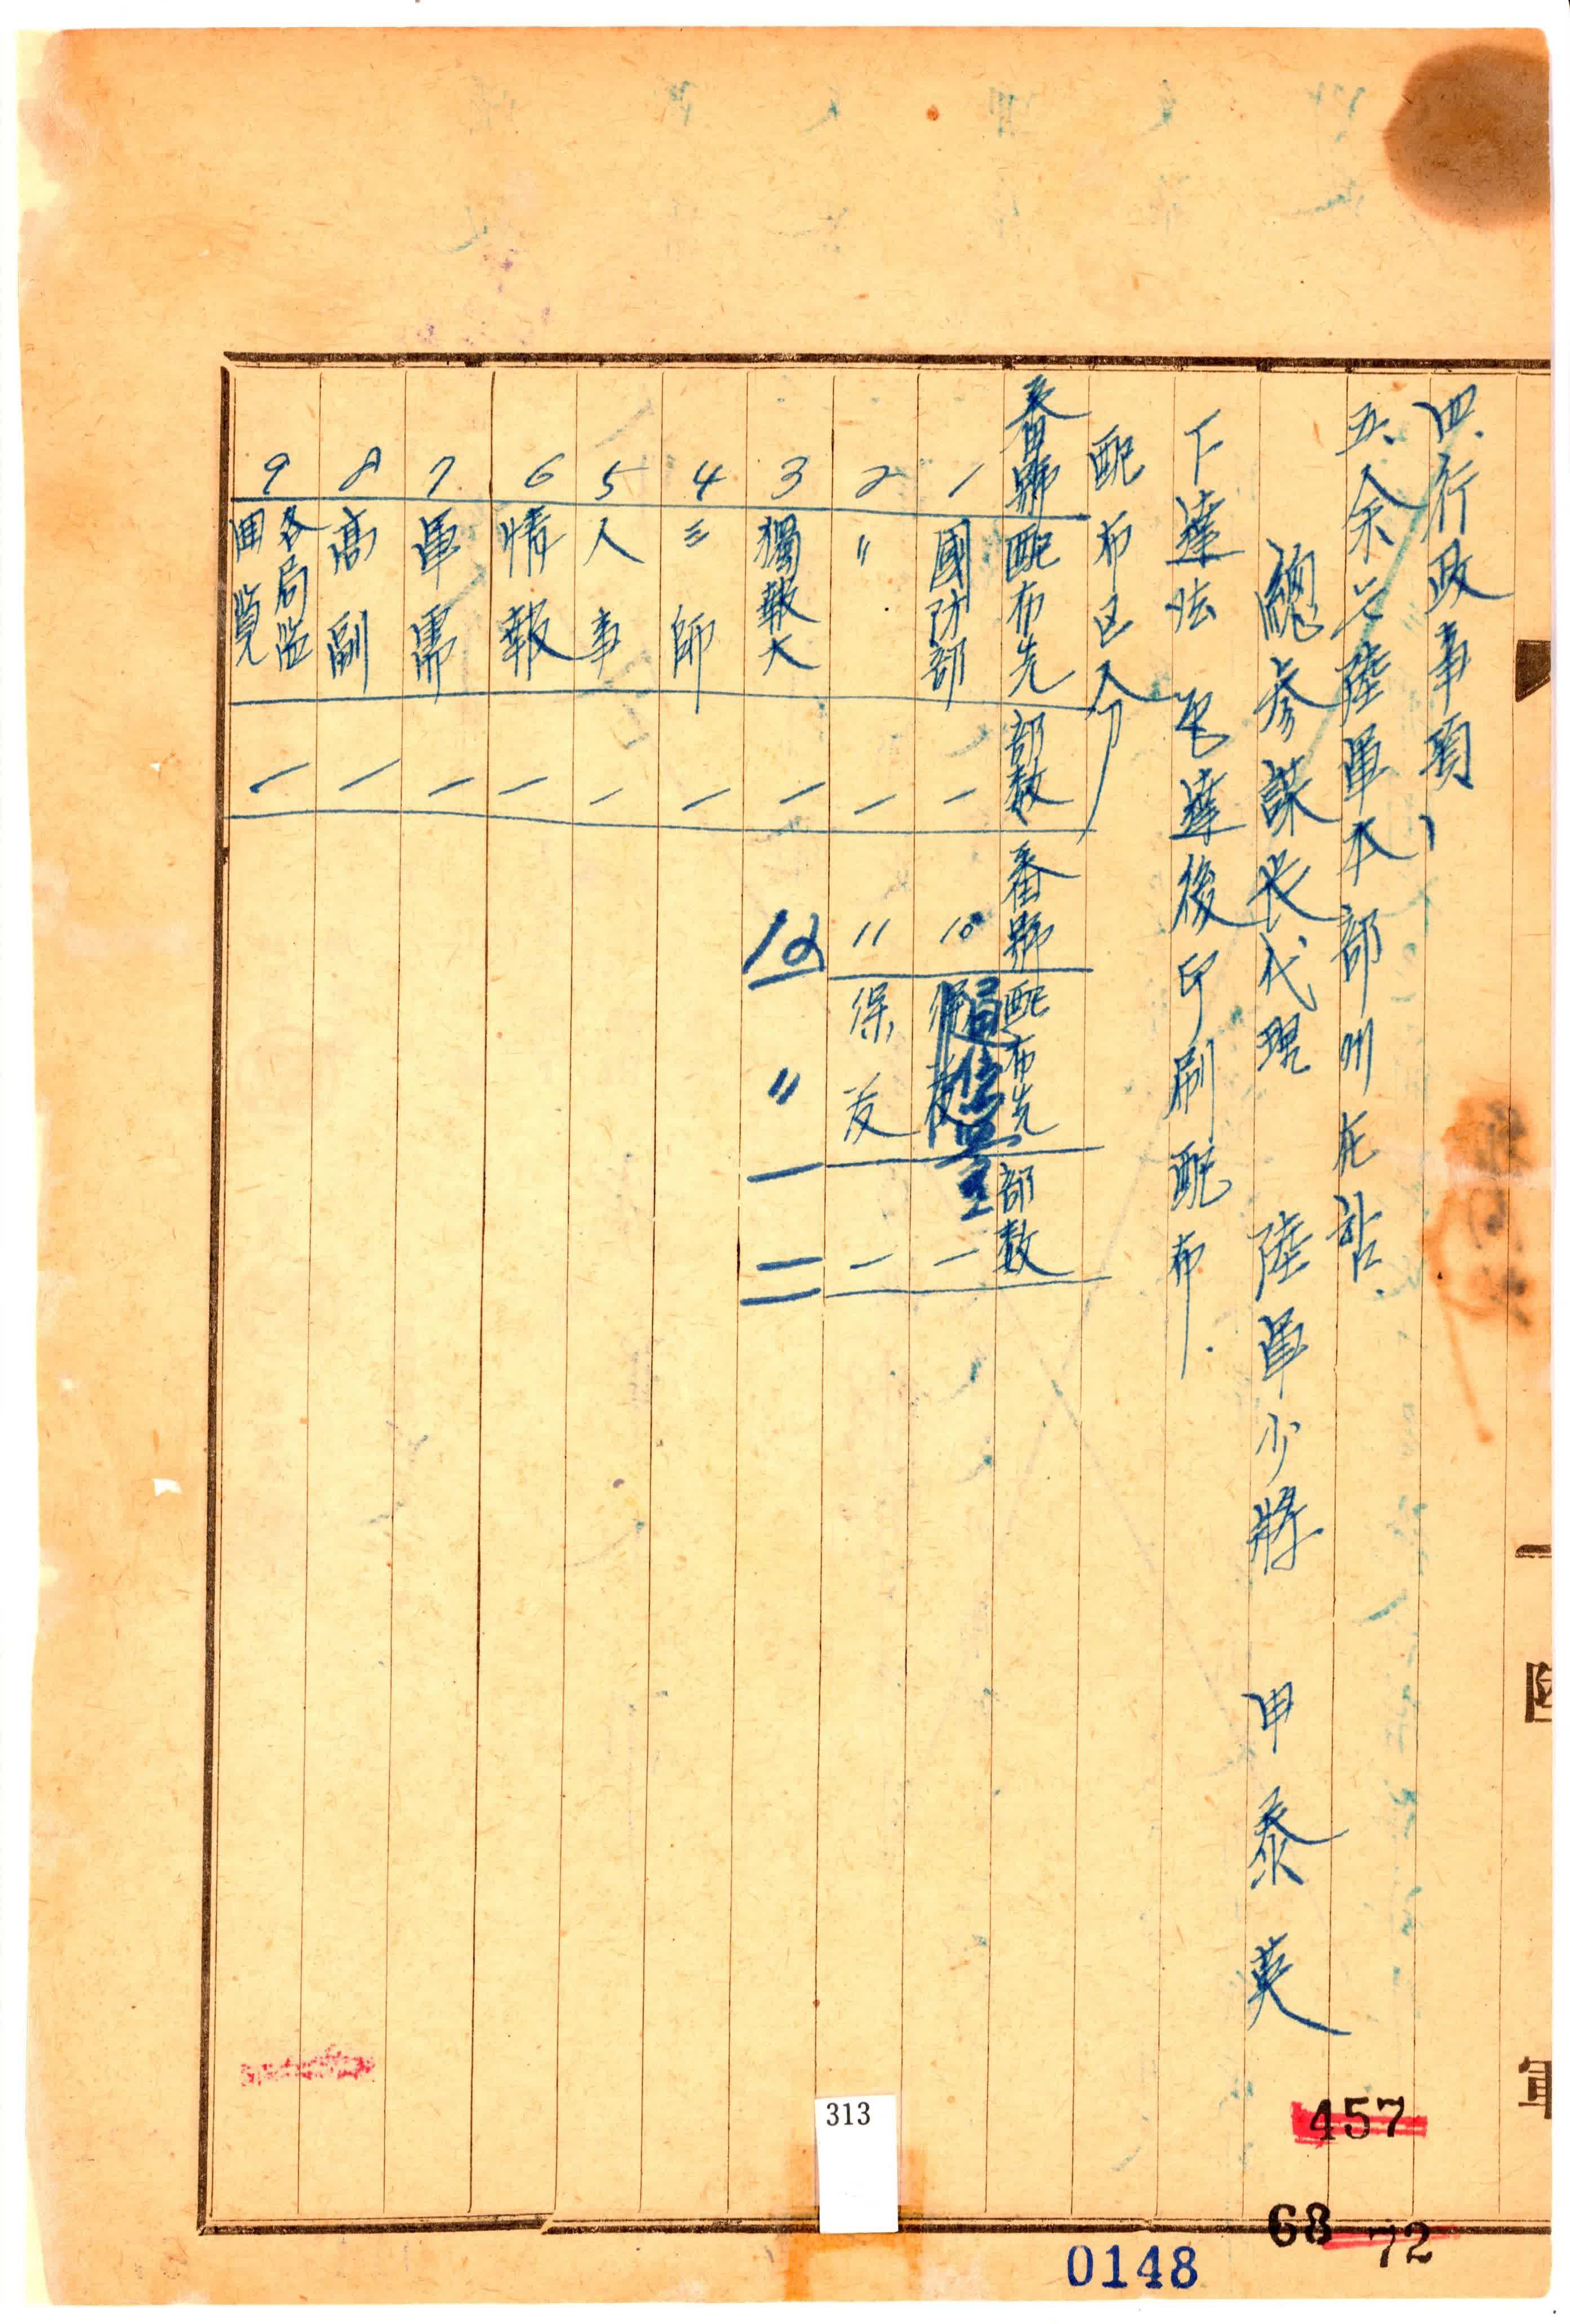 四. 行政事項
五. 余는 陸軍本部 州 在함.
總參謀長代理 陸軍少將 申泰英
下達法 電達後印刷配布.
配布区分
番號 配布先 部数 番號 配布先 部数
1 國防部 一 10 一
2 〃 一 11 保 友 一
3 獨報大 一 12 〃 一 二
4 三師 一
5 人事 一
6 情報 一
7 軍需 一
8 高副 一
9 各局监回覧 一
陸
軍
457
68
72
313
0148